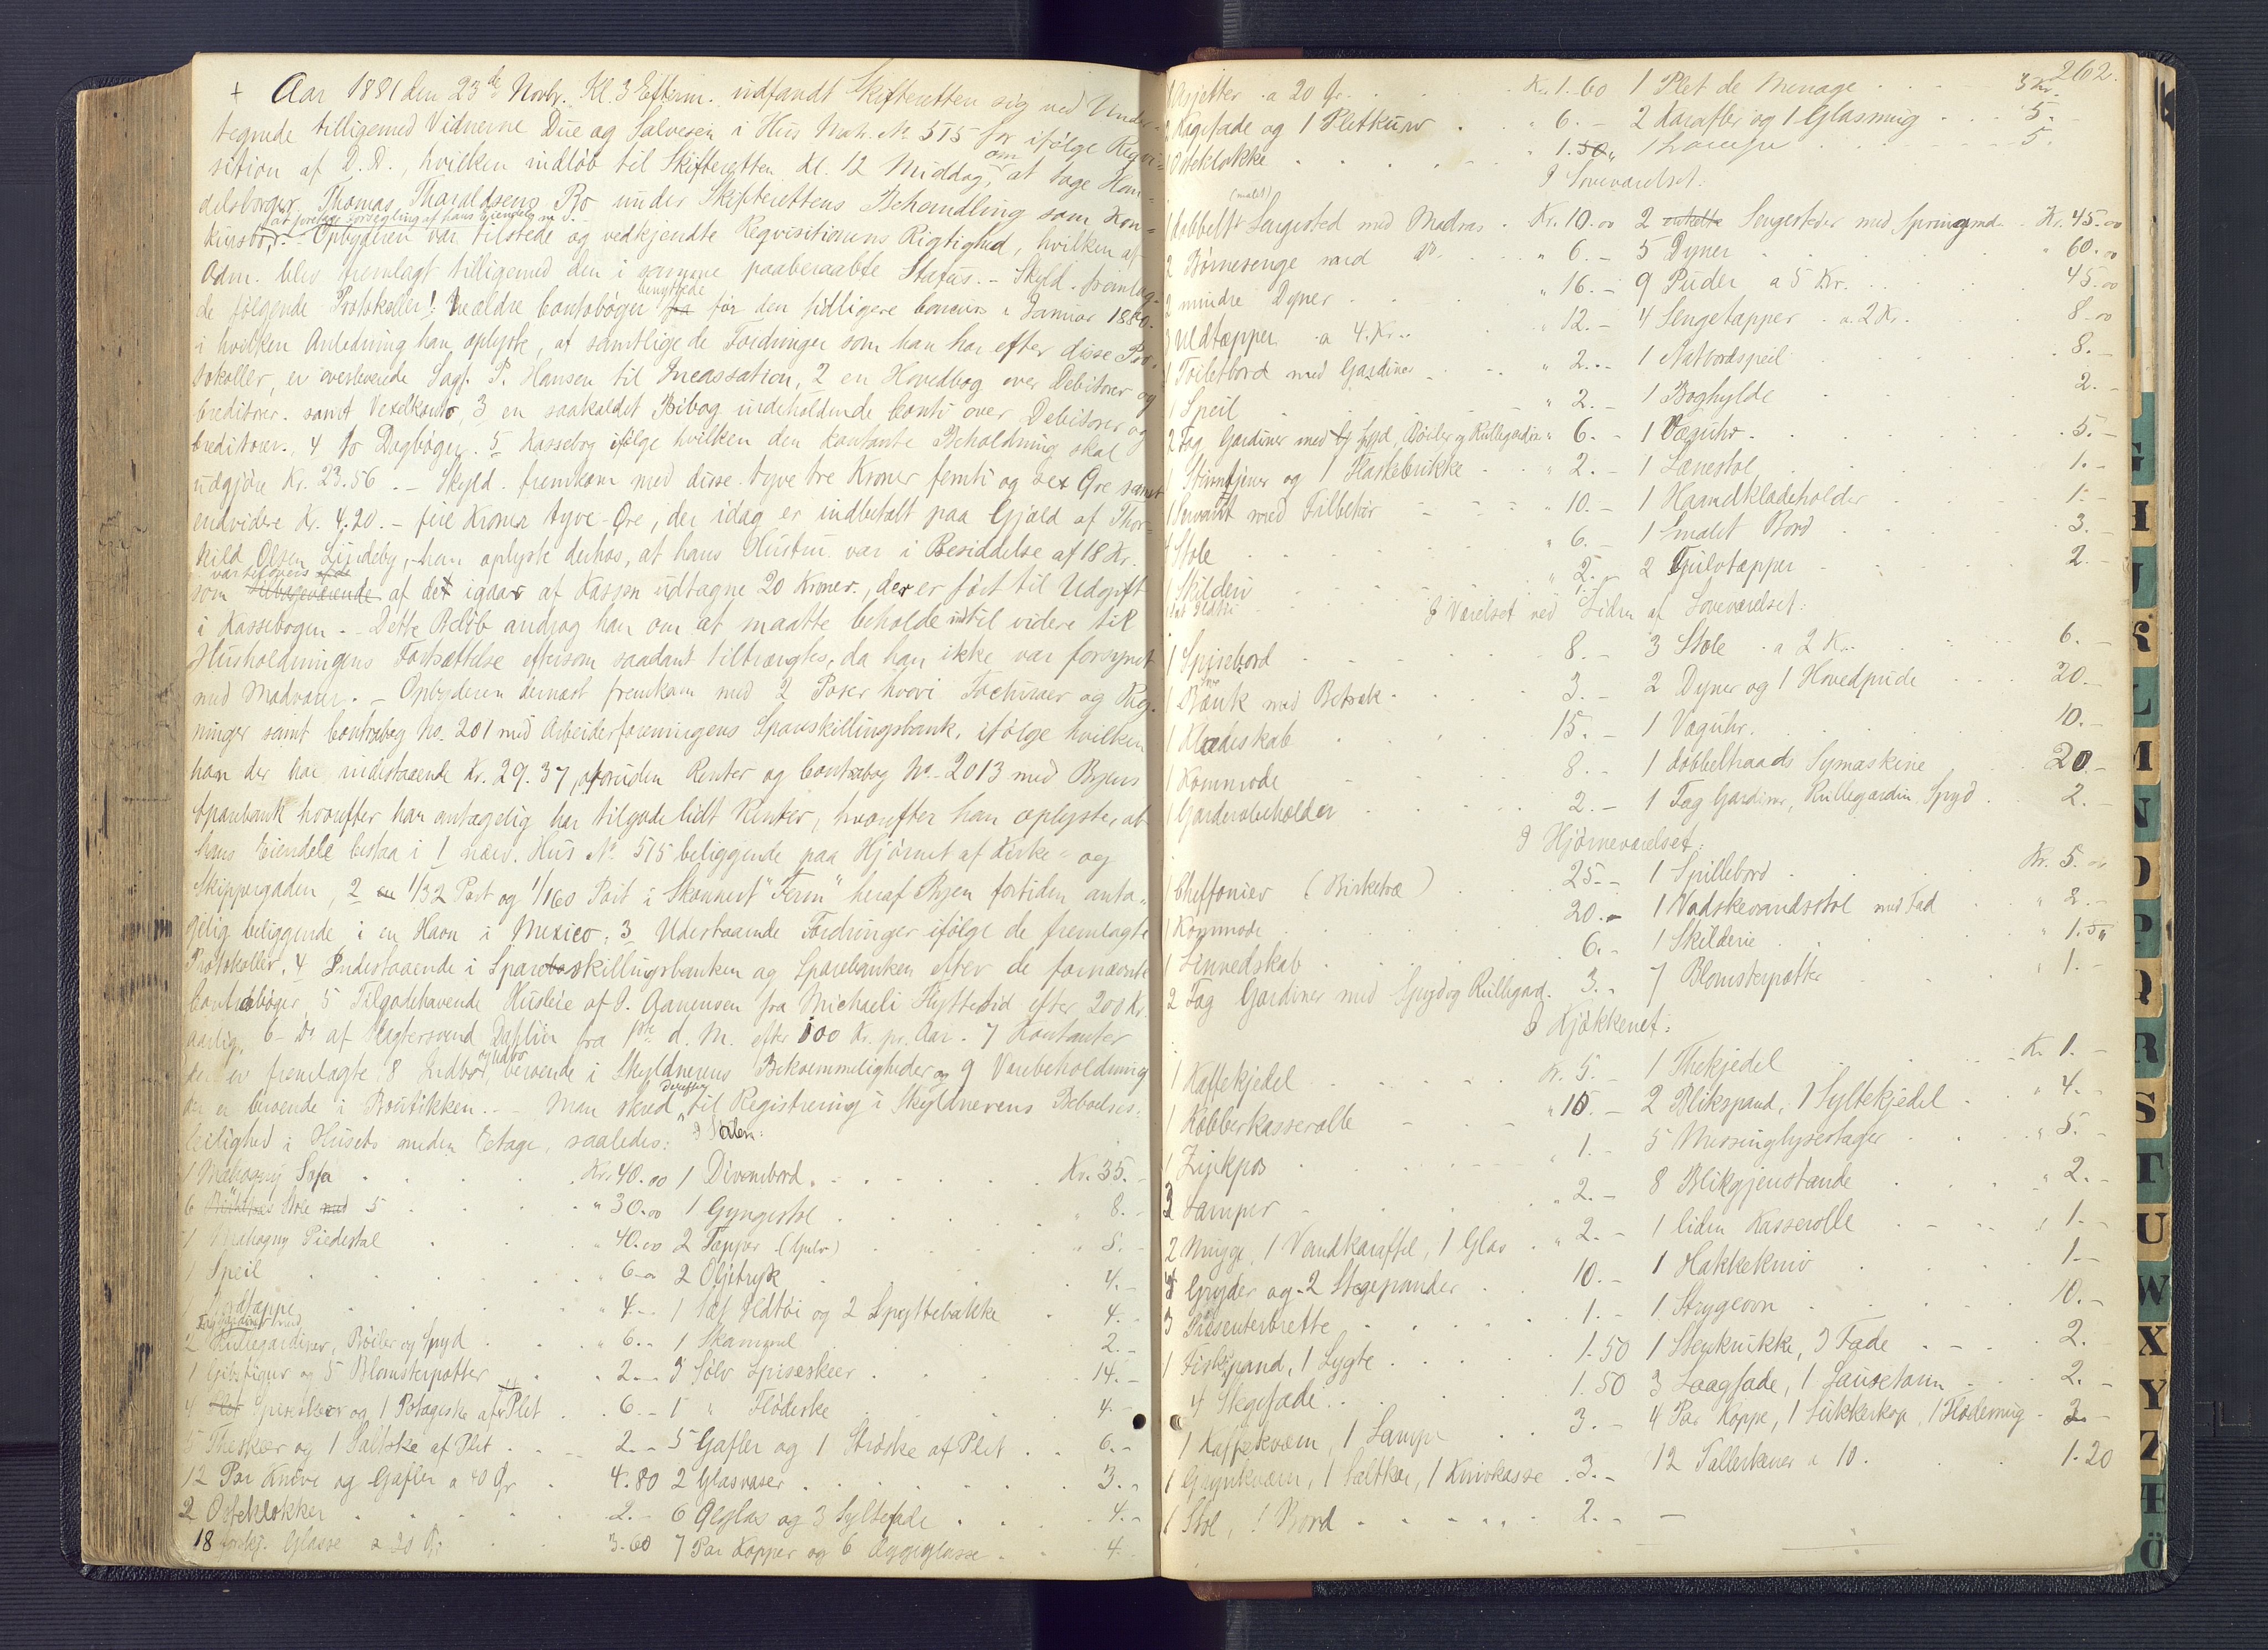 + Aar 1881 den 23de Novbr. Kl. 3 Efterm. indfandt Skifteretten sig ved Under-
tegnede tilligemed Vidnerne Due og Salvesen i Hus Matr. No 515 for ifølge Reqvi-
sition af D. D., hvilken indløb til Skifteretten Kl. 12 Middag, om at tage Han-
delsborger Thomas Tharaldsens Bo under Skifterettens Behandling som Kon-
at foretage Forsegling af hans Eiendele m. v.
kursbo. - Opbyderen var tilstede og vedkjendte Reqvisitionens Rigtighed, hvilken af
Adm. blev fremlagt tilligemed den i samme paaberaabte Status. - Skyld. fremlag-
de følgende Protokoller: 1 ældre Contobøger benyttede før den tidligere Concurs i Januar 1880.
i hvilken Anledning han oplyste, at samtlige de Fordringer som han har efter disse Pro-
tokoller, er overleverede Sagf. P. Hansen til Incassation, 2 en Hovedbog over Debitorer og
Creditorer. samt Vexelkonto, 3 en saakaldet Bibog indeholdende Conti over Debitorer og
Creditorer. 4 to Dagbøger. 5 Kassebog ifølge hvilken den kontante Beholdning skal
udgjøre Kr. 23.56. - Skyld. fremkom med disse tyve tre Kroner femti og sex Øre samt
endvidere Kr. 4.20. - fire Kroner tyve Øre, der idag er indbetalt paa Gjæld af Thor-
kild Olsen Lindeby, - han oplyste derhos, at hans Hustru var i Besiddelse af 18 Kr.
var tilovers
som tilbageværende af det igaar af Kassen udtagne 20 Kroner, der er ført til Udgift
i Kassebogen. - Dette Beløb androg han om at maatte beholde indtil videre til
Husholdningens Fortsættelse eftersom saadant tiltrængtes, da han ikke var forsynet
med Madvarer. - Opbyderen dernæst fremkom med 2 Poser hvori Facturaer og Reg-
ninger samt Contrabog No. 201 med Arbeiderforeningens Spareskillingsbank, ifølge hvilken
han der har indestaaende Kr. 29.37, foruden Renter og Contrabog No. 2013 med Byens
Sparebank hvorefter han antagelig har tilgode lidt Renter, hvorefter han oplyste, at
hans Eiendele bestaa i 1 nærv. Hus No 515 beliggende paa Hjørnet af Kirke- og
Skippergaden, 2 en 1/32 Part og 1/160 Part i Skonnert "Ferm" heraf Byen fortiden anta-
gelig beliggende i en Havn i Mexico; 3 Udestaaende Fordringer ifølge de fremlagte
Protokoller, 4 Indestaaende i Spareskillingsbanken og Sparebanken efter de fornævnte
Contrabøger, 5 Tilgodehavende Husleie af J. Aanensen fra Michaeli Flyttetid efter 200 Kr.
aarlig, 6 Do af Slagtersvend Dahlin fra 1ste d. M. efter 100 Kr. pr. Aar. 7 Kontanter
der er fremlagte, 8 Indbo og Udbo beroende i Skyldnerens Bekvemmeligheder og 9 Varebeholdning
der er beroende i Boutikken. - Man skred derefter til Registrering i Skyldnerens Beboelses-
leilighed i Husets nedre Etage, saaledes: I Salen:
1 Mahogny Sofa Kr. 40.00 1 Divanbord Kr. 35.-
6 Stole 5 " 30.00 1 Gyngestol " 8.-
1 Mahogny Piedestal 40.00 2 Tæpper (Gulv) " 8.-
1 Speil 6.- 2 Oljetryk 4.-
1 Bordtæppe " 4.- 1 Sæt Ildtøi og 2 Spyttebakke 4.-
Fag Gardiner med
2 Rullegardiner, Bøiler og Spyd " 6.- 1 Skammel 2.-
1 Gibsfigur og 5 Blomsterpotter 2.- 3 Sølv Spiseskeer 14.-
4 Spiseskeer og 1 Potageske af Plet 6.- 1 " Fløteske 4.-
5 Theskeer og 1 Saltske af Plet 2.- 5 Gafler og 1 Strøske af Plet 6.-
12 Par Knive og Gafler a 40 Ør 4.80 2 Glasvaser 3.-
2 Osteklokker 2.- 6 Ølglas og 3 Syltefade 4.-
18 forskj. Glasse a 20 Ør 3.60 7 Par Kopper og 6 Æggeglasse 4.-
262.
Asjetter a 20 Ør. Kr. 1.60 1 Plet de Menage 3 Kr.
2 Kagefade og 1 Pletkurv " 6.- 2 Karafler og 1 Glasmug 5.-
1 Osteklokke " 1.50 1 Lampe 5.
I Soveværelset:
(malet)
1 dobbelt Sengested med Madras Kr. 10.00 2 enkelte Sengesteder med Springmd. Kr. 45.00
2 Børnesenge med do " 6.- 5 Dyner " 60.00
2 mindre Dyner " 16.- 9 Puder a 5 Kr. 45.00
3 Uldtæpper a 4 Kr. " 12.- 4 Sengetæpper a 2 Kr. 8.00
1 Toiletbord med Gardiner " 2.- 1 Natbordspeil 8.-
1 Speil " 2.- 1 Boghylde 2.-
2 Fag Gardiner med Spyd, Bøiler og Rullegardin " 6.- 1 Væguhr 5.-
1 Stumtjener og 1 Flaskebrikke " 2.- 1 Lænestol 1.-
1 Servant med Tilbehør " 10.- 1 Haandklædeholder 1.-
4 Stole " 6.- 1 malet Bord 3.
1 Skilderi " 2.- 2 Gulvtæpper 2.-
I Værelset ved Siden af Soveværelset:
1 Spisebord 8.- 3 Stole a 2 Kr. 6.-
1 Bænk med Betræk 3.- 2 Dyner og 1 Hovedpude 20.-
1 Klædeskab 15.- 1 Væguhr. 10.-
1 Kommode 8.- 1 dobbeltraads Symaskine 20.-
1 Garderobeholder 2.- 1 Fag Gardiner, Rullegardin, Spyd 2.-
I Hjørneværelset:
1 Cheffonier (Birketræ) 25.- 1 Spillebord Kr. 5.00
1 Kommode 20.- 1 Vadskevandsstol med Fad " 2.-
1 Linnedskab 6.- 1 Skilderie " 1.50
2 Fag Gardiner med Spyd og Rullegard. 3.- 7 Blomsterpotter " 1.-
I Kjøkkenet:
1 Kaffekjedel Kr. 5.- 1 Thekjedel Kr. 1.-
1 Kobberkasserolle " 10.- 2 Blikspand, 1 Syltekjedel " 4.-
1 Zinkpøs " 1.- 5 Messinglysestager " 5.-
3 Lamper " 2.- 8 Blikgjenstande " 2.-
2 Mugge, 1 Vandkaraffel, 1 Glas " 2.- 1 liden Kasserolle " 1.-
Gryder og 2 Stegepander 10.- 1 Hakkekniv 1.-
3 Præsenterbrette 1.- 1 Strygeovn 10.-
1 Fiskspand, 1 Lygte 1.50 1 Stenkrukke, 3 Fade 2.-
4 Stegefade 1.50 3 Laagfade, 1 Sausetarin 2.-
1 Kaffekværn, 1 Lampe 3.- 4 Par Koppe, 1 Sukkerkop, 1 Flødemug 3.-
1 Grynkværn, 1 Saltkar, 1 Knivkasse 3.- 12 Tallerkener a 10. 1.20
1 Stol, 1 Bord 2.-
G
H
I
J
K
L
M
N
O
P
Q
R
S
T
U
W
X
Y
Z
Æ
Ö